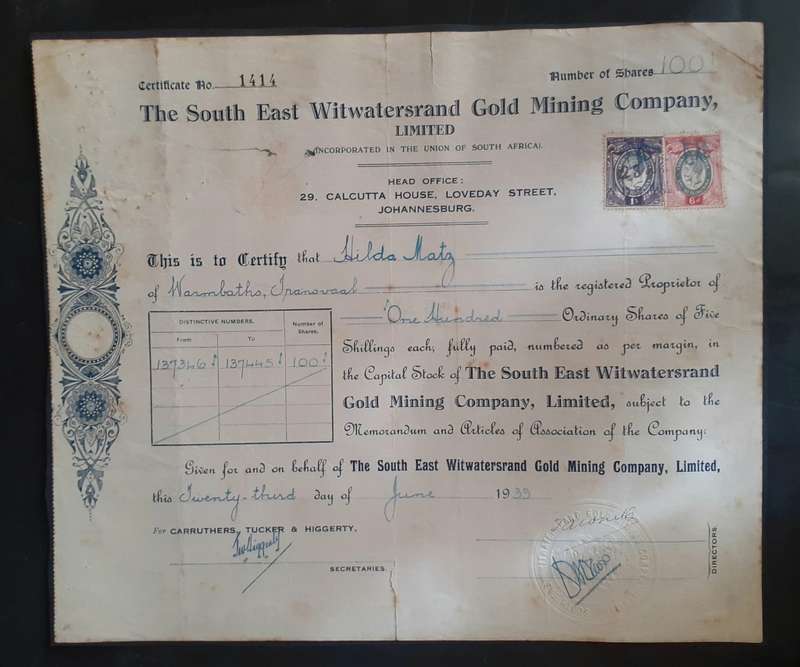 Certificate No. 1414
Number of Shares 100
The South East Witwatersrand Gold Mining Company,
LIMITED
(INCORPORATED IN THE UNION OF SOUTH AFRICA).
HEAD OFFICE:
29, CALCUTTA HOUSE, LOVEDAY STREET,
JOHANNESBURG.
This is to Certify that Hilda Matz
of Warmbaths, Transvaal is the registered Proprietor of
One Hundred Ordinary Shares of Five
Shillings each, fully paid, numbered as per margin, in
the Capital Stock of The South East Witwatersrand
Gold Mining Company, Limited, subject to the
Memorandum and Articles of Association of the Company.
DISTINCTIVE NUMBERS.
Number of Shares.
From To
137346 137445 100
Given for and on behalf of The South East Witwatersrand Gold Mining Company, Limited,
this Twenty-third day of June 1933
For CARRUTHERS, TUCKER & HIGGERTY.
SECRETARIES.
DIRECTORS.